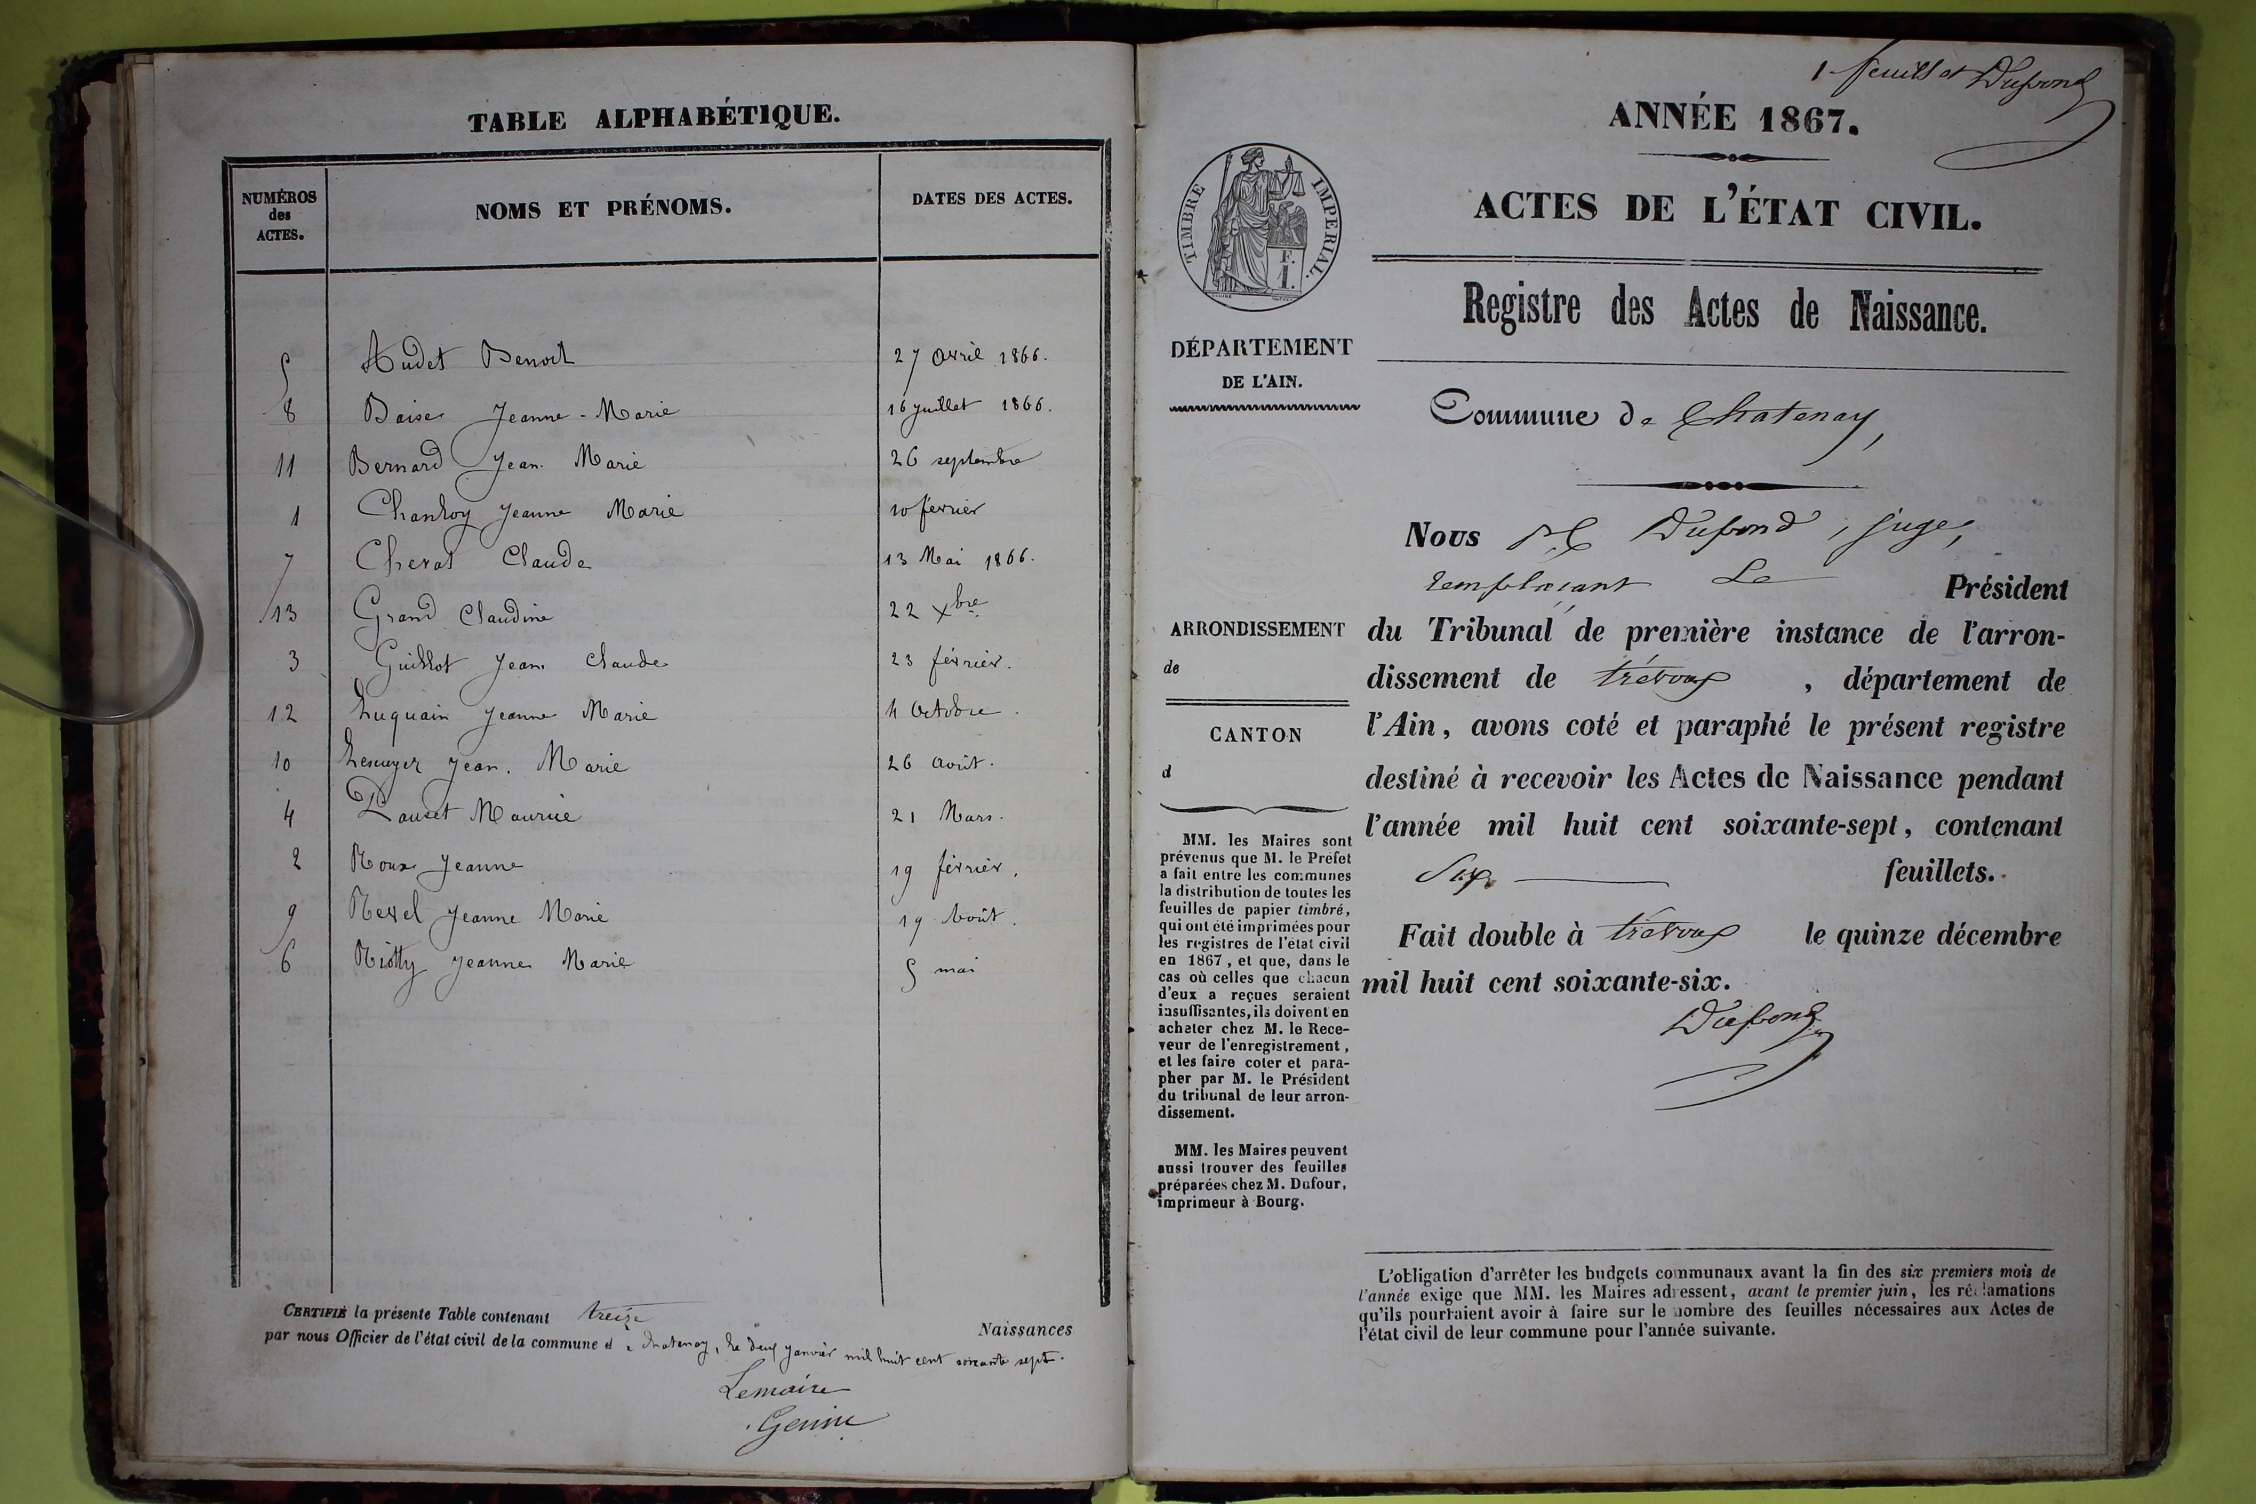 TABLE ALPHABÉTIQUE.
NUMÉROS des ACTES. NOMS ET PRÉNOMS. DATES DES ACTES.
5 Audet Benoit 27 avril 1866.
8 Baise Jeanne-Marie 16 juillet 1866.
11 Bernard Jean Marie 26 septembre
1 Chanroy Jeanne Marie 10 février
7 Cherat Claude 13 Mai 1866.
13 Grand Claudine 22 xbre
3 Guillot Jean Claude 23 février.
12 Luquain Jeanne Marie 4 octobre.
10 Lescuyer Jean. Marie 26 août.
4 Pauset Maurice 21 Mars.
2 Roux Jeanne 19 février.
9 Revel Jeanne Marie 19 Août.
6 Riotty Jeanne Marie 5 mai
CERTIFIÉ la présente Table contenant treize Naissances
par nous Officier de l'état civil de la commune d e chatenay, le deux janvier mil huit cent soixante sept.
Lemaire
Genin
1 feuillet Dupond
ANNÉE 1867.
ACTES DE L'ÉTAT CIVIL.
Registre des Actes de Naissance.
TIMBRE IMPERIAL.
F.
1.
DÉPARTEMENT
DE L'AIN.
Commune de Chatenay,
Nous Dupond, juge,
remplaçant Le Président
du Tribunal de première instance de l'arron-
dissement de trévoux, département de
l'Ain, avons coté et paraphé le présent registre
destiné à recevoir les Actes de Naissance pendant
l'année mil huit cent soixante-sept, contenant
Six feuillets.
Fait double à trévoux le quinze décembre
mil huit cent soixante-six.
Dupond
ARRONDISSEMENT
de
CANTON
d
MM. les Maires sont
prévenus que M. le Préfet
a fait entre les communes
la distribution de toutes les
feuilles de papier timbré,
qui ont été imprimées pour
les registres de l'état civil
en 1867, et que, dans le
cas où celles que chacun
d'eux a reçues seraient
insuffisantes, ils doivent en
acheter chez M. le Rece-
veur de l'enregistrement,
et les faire coter et para-
pher par M. le Président
du tribunal de leur arron-
dissement.
MM. les Maires peuvent
aussi trouver des feuilles
préparées chez M. Dufour,
imprimeur à Bourg.
L'obligation d'arrêter les budgets communaux avant la fin des six premiers mois de
l'année exige que MM. les Maires adressent, avant le premier juin, les réclamations
qu'ils pourraient avoir à faire sur le nombre des feuilles nécessaires aux Actes de
l'état civil de leur commune pour l'année suivante.